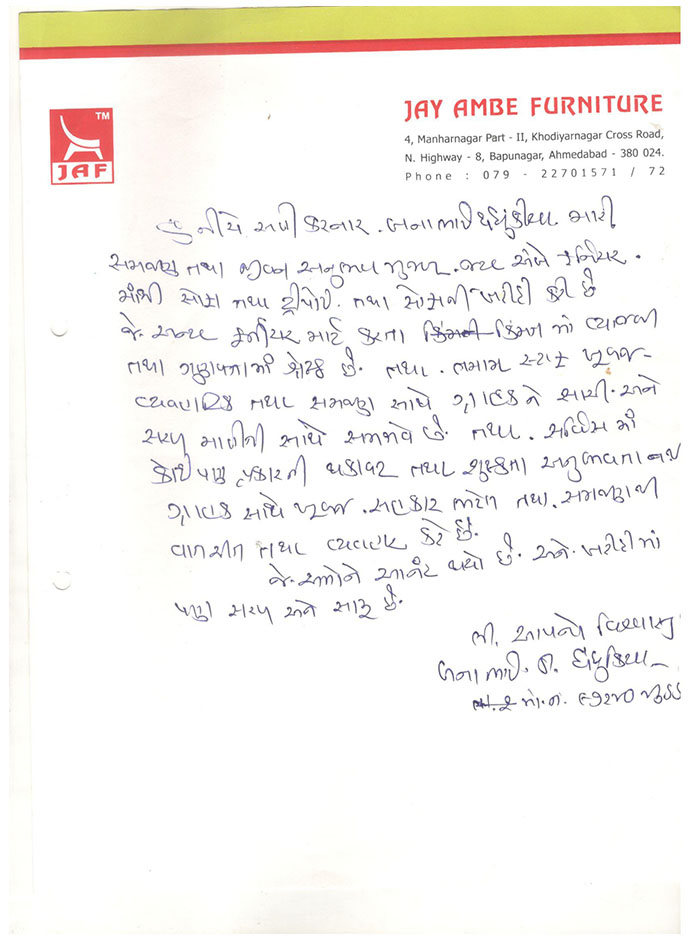 TM
JAF
JAY AMBE FURNITURE
4, Manharnagar Part - II, Khodiyarnagar Cross Road,
N. Highway - 8, Bapunagar, Ahmedabad - 380 024.
Phone : 079 - 22701571 / 72
હું નીચે સહી કરનાર મારી
સમજણ તથા જીવન અનુભવ મુજબ જય અંબે ફર્નિચર
માંથી સોફા તથા ટીપોઈ તથા સોફાની ખરીદી કરી છે
જે અન્ય ફર્નિચર માર્ટ કરતા કિંમત માં વ્યાજબી
તથા ગુણવત્તામાં શ્રેષ્ઠ છે. તથા તમામ સ્ટાફ ખૂબજ
વ્યવહારિક તથા સમજણ સાથે ગ્રાહક ને સાચી અને
સરળ માહિતી સાથે સમજાવે છે. તથા સર્વિસ માં
કોઈપણ પ્રકારની થકાવટ તથા શુષ્કતા
ગ્રાહક સાથે ખૂબજ સહકાર ભરેલ તથા સમજણથી
વાતચીત તથા વ્યવહાર કરે છે.
જે અમોને આનંદ થયો છે. અને ખરીદીમાં
પણ સરળ અને સારૂ છે.
લી. આપનો વિશ્વાસુ
ધંધુકિયા
મો.ન.